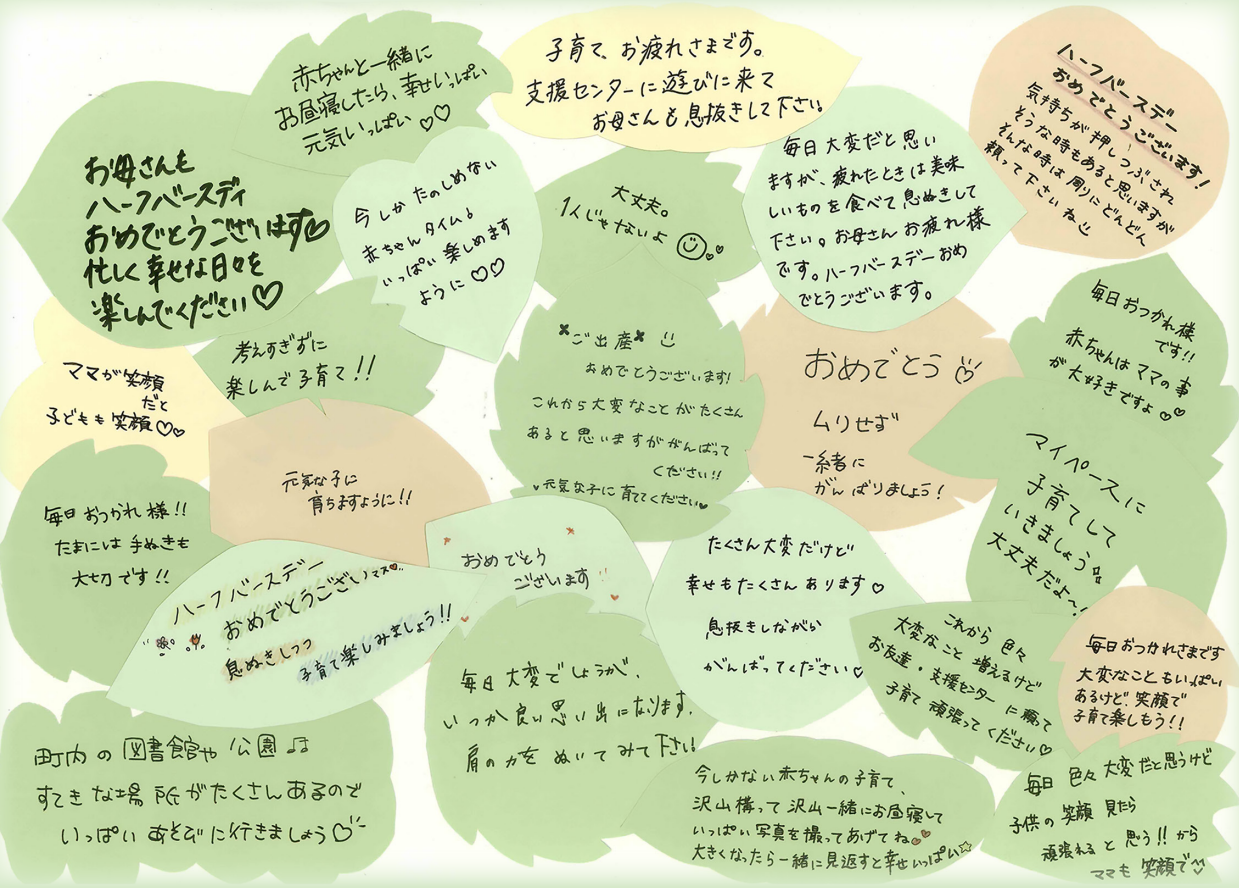 赤ちゃんと一緒に
お昼寝したら、幸せいっぱい
元気いっぱい♡♡
子育て、お疲れさまです。
支援センターに遊びに来て
お母さんも息抜きして下さい。
ハーフバースデー
おめでとうございます!
気持ちが押しつぶされ
そうな時もあると思いますが
そんな時は周りにどんどん
頼って下さいね
お母さんも
ハーフバースディ
おめでとうございます♡
忙しく幸せな日々を
楽しんでください♡
今しかたのしめない
赤ちゃんタイムを
いっぱい楽しめます
ように♡♡
大丈夫。
1人じゃないよ
毎日大変だと思い
ますが、疲れたときは美味
しいものを食べて息ぬきして
下さい。お母さんお疲れ様
です。ハーフバースデーおめ
でとうございます。
毎日おつかれ様
です!!
赤ちゃんはママの事
が大好きですよ♡♡
ママが笑顔
だと
子どもも笑顔♡♡
考えすぎずに
楽しんで子育て!!
ご出産
おめでとうございます!
これから大変なことがたくさん
あると思いますががんばって
ください!!
♥元気な子に育ててください♥
おめでとう
ムリせず
一緒に
がんばりましょう!
マイペースに
子育てして
いきましょう。
大丈夫だよ~!
元気な子に
育ちますように!!
毎日おつかれ様!!
たまには手ぬきも
大切です!!
おめでとう
ございます
ハーフバースデー
おめでとうございマス♡
息ぬきしつつ
子育て楽しみましょう!!
たくさん大変だけど
幸せもたくさんあります♡
息抜きしながら
がんばってください♡
これから色々
大変なこと増えるけど
お友達・支援センターに頼って
子育て頑張ってください♡
毎日おつかれさまです
大変なこともいっぱい
あるけど、笑顔で
子育て楽しもう!!
毎日大変でしょうが、
いつか良い思い出になります。
肩の力をぬいてみて下さい
町内の図書館や公園♫
すてきな場所がたくさんあるので
いっぱいあそびに行きましょう♡
今しかない赤ちゃんの子育て、
沢山構って沢山一緒にお昼寝して
いっぱい写真を撮ってあげてね♡♡
大きくなったら一緒に見返すと幸せいっぱい☆
毎日色々大変だと思うけど
子供の笑顔見たら
頑張れると思う!!から
ママも笑顔で